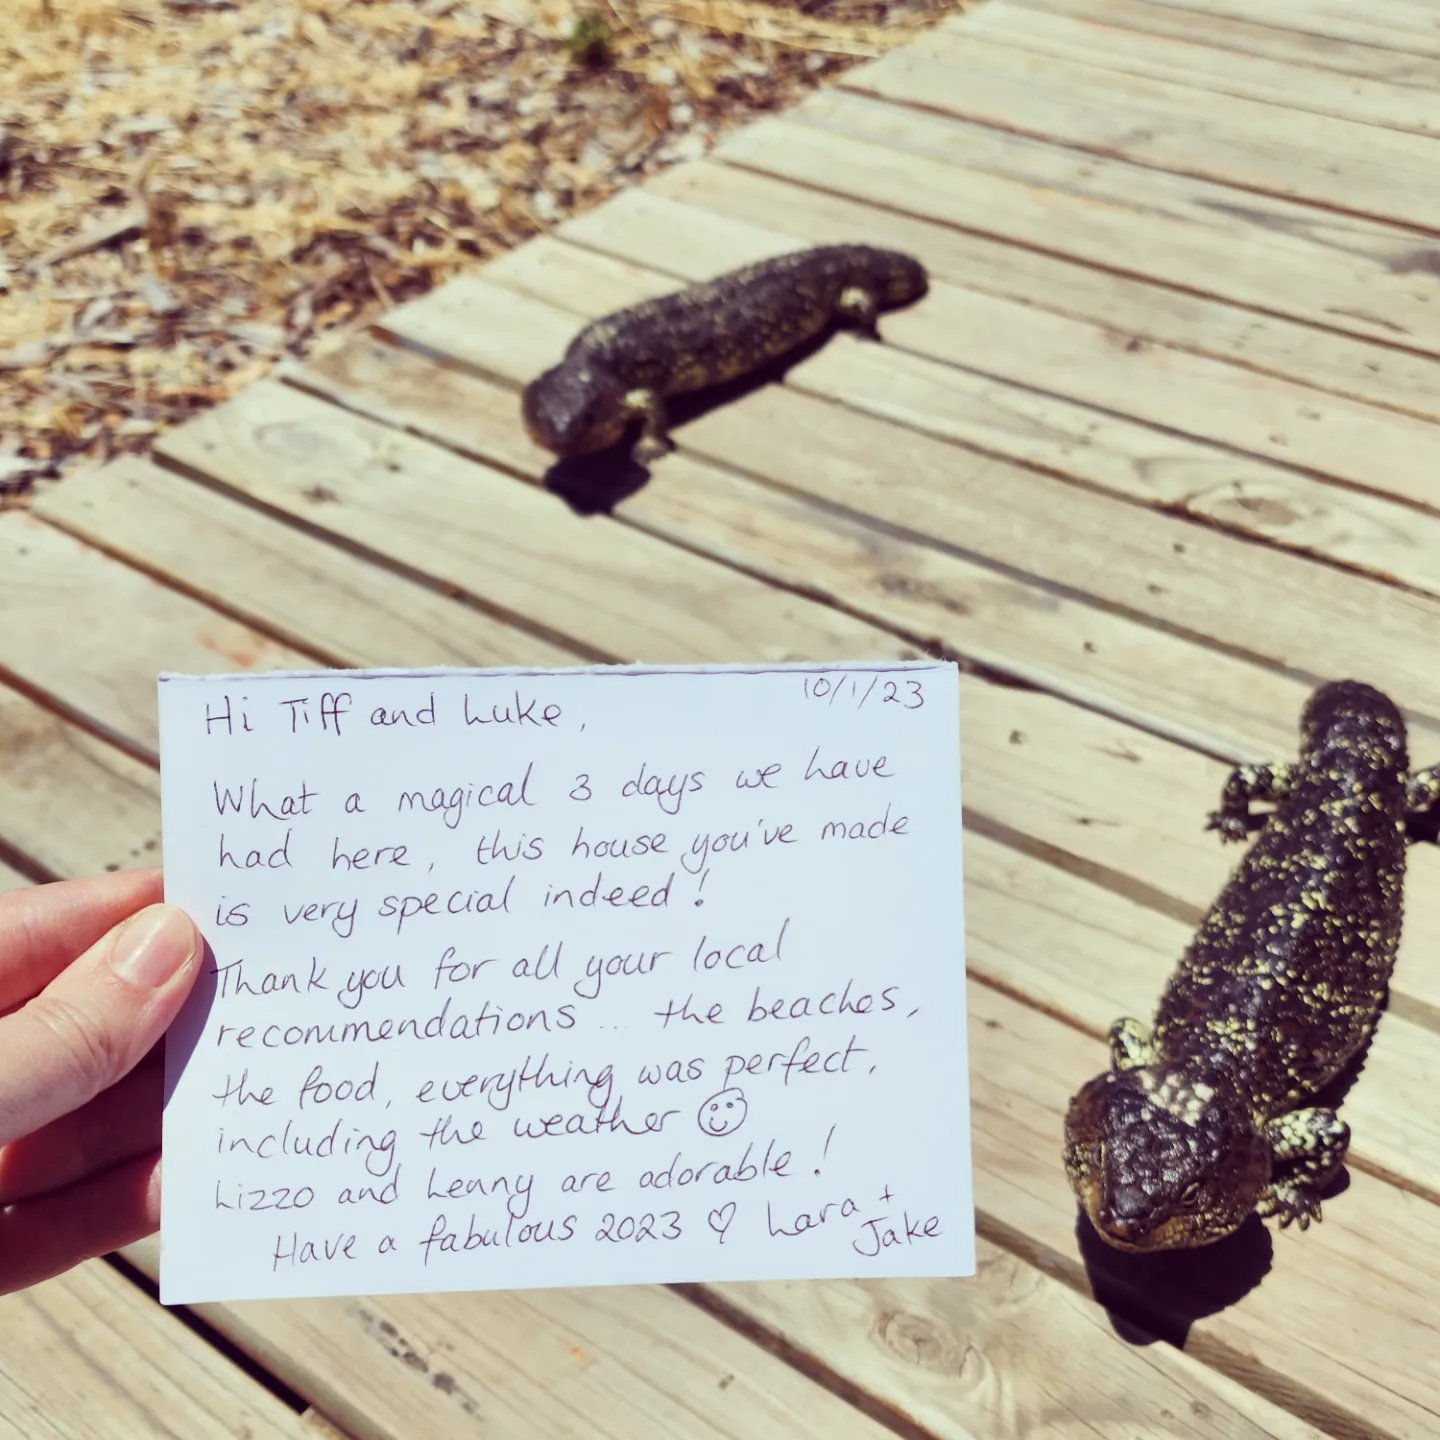 10/1/23
Hi Tiff and Luke,
What a magical 3 days we have
had here, this house you've made
is very special indeed!
Thank you for all your local
recommendations ... the beaches,
the food, everything was perfect,
including the weather ☺
Lizzo and Lenny are adorable!
Have a fabulous 2023 ♡ Lara +
Jake